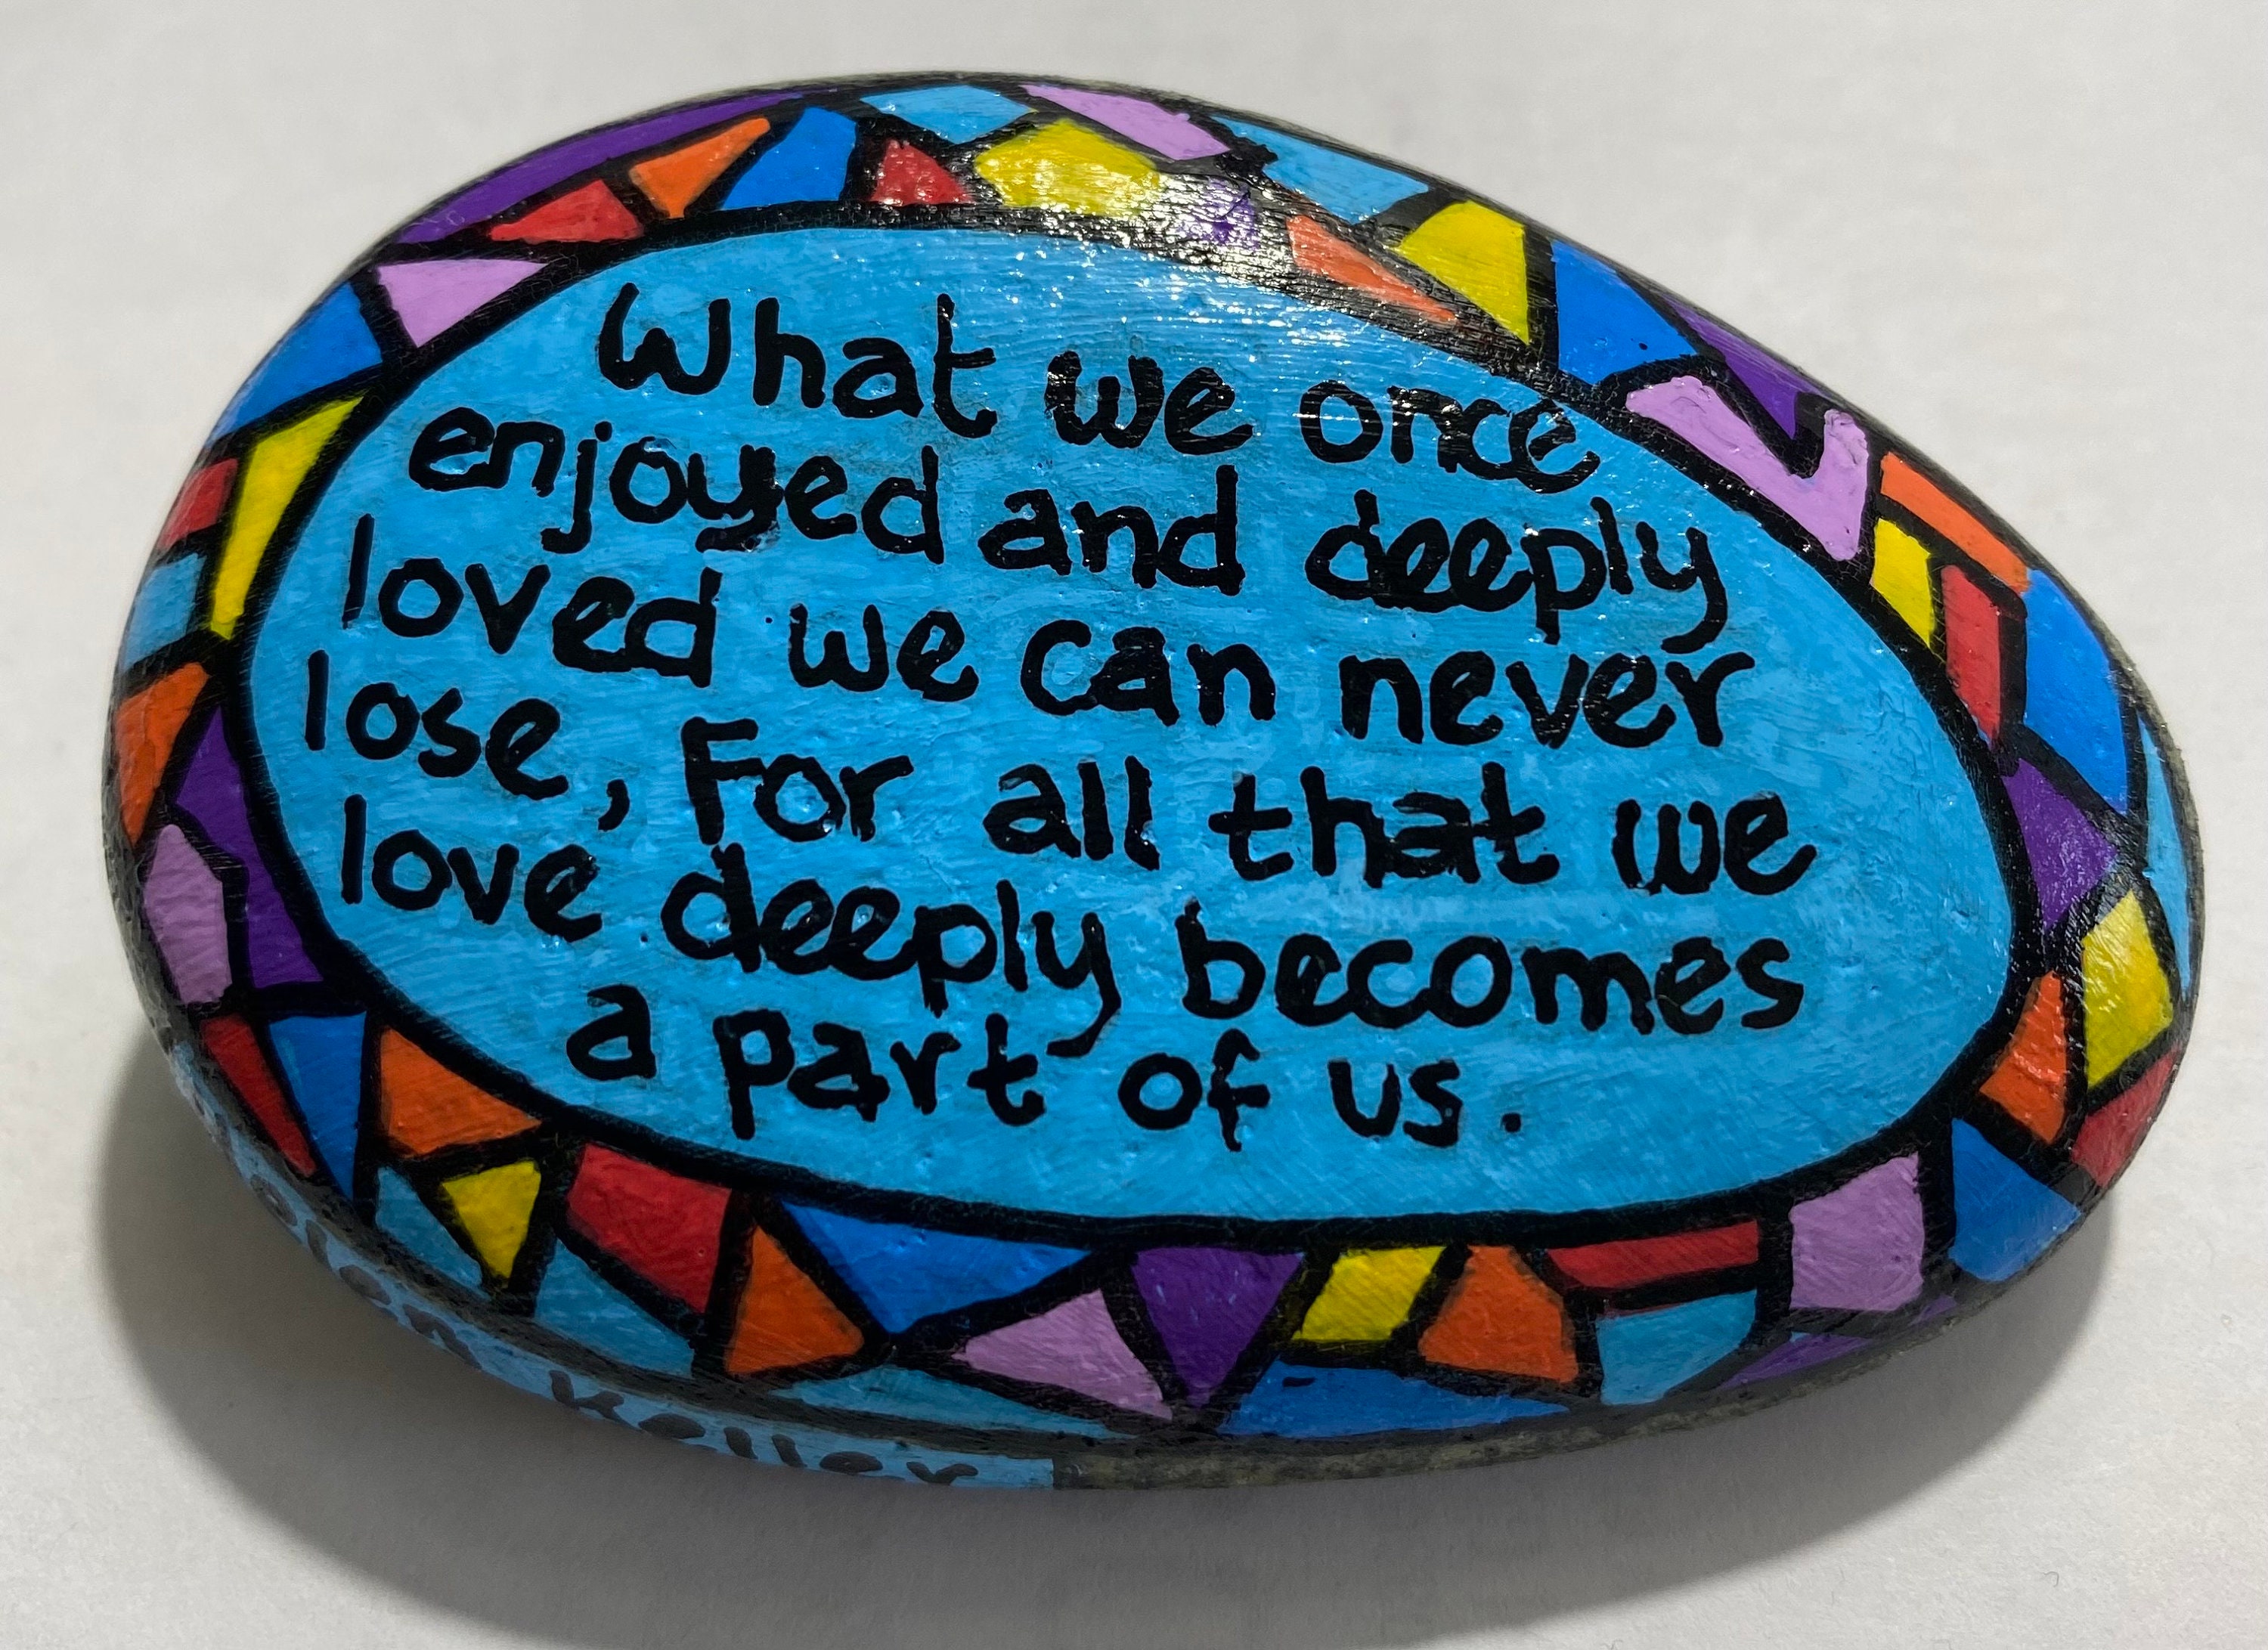 What we once
enjoyed and deeply
loved we can never
lose, For all that we
love deeply becomes
a part of us.
Helen Keller